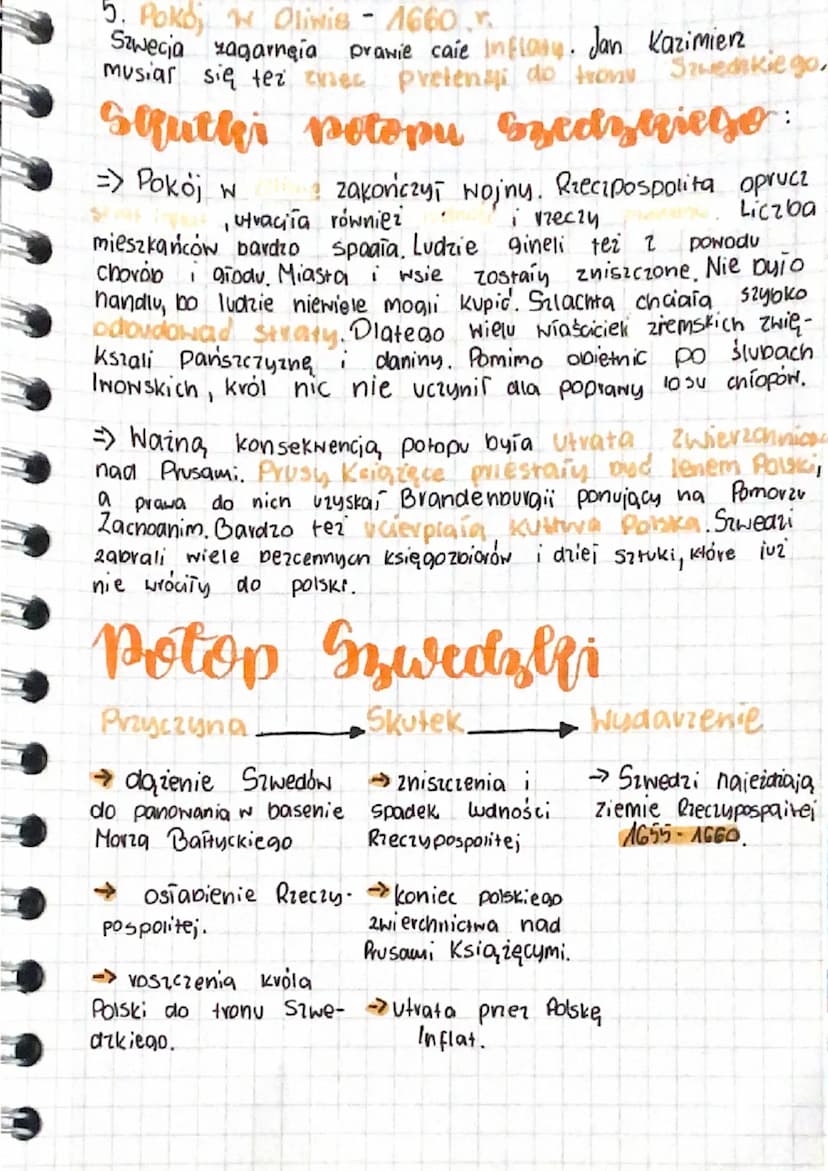 5. Pokój w Oliwie - 1660 r.
Szwecja zagarnęła prawie całe Inflaty. Jan Kazimierz
musiał się też zrzec pretensji do tronu Szwedzkiego.
Skutki potopu szwedzkiego:
=> Pokój w zakończył wojny. Rzeczpospolita oprucz
, utraciła również i rzeczy Liczba
mieszkańców bardzo spadła. Ludzie gineli też z powodu
chorób i głodu. Miasta i wsie zostały zniszczone. Nie było
handlu, bo ludzie niewiele mogli kupić. Szlachta chciała szybko
odbudować straty. Dlatego wielu właścicieli ziemskich zwię-
kszali pańszczyznę i daniny. Pomimo obietnic po ślubach
lwowskich, król nic nie uczynił dla poprawy losu chłopów.
=> Ważną konsekwencją potopu była utrata zwierzchnictwa
nad Prusami. Prusy Książęce przestały być lenem Polski,
a prawa do nich uzyskał Brandenburgii ponujący na Pomorzu
Zachodnim. Bardzo też ucierpiała kultura Polska. Szwedzi
zabrali wiele bezcennych księgozbiorów i dzieł sztuki, które już
nie wróciły do polski.
Potop Szwedzki
Przyczyna → Skutek → Wydarzenie
→ dążenie Szwedów → zniszczenia i → Szwedzi najeżdżają
do panowania w basenie spadek ludności ziemie Rzeczypospolitej
Morza Bałtyckiego Rzeczypospolitej 1655 - 1660.
→ osłabienie Rzeczy- → koniec polskiego
pospolitej. zwierchnictwa nad
Prusami Książęcymi.
→ roszczenia króla
Polski do tronu Szwe- → utrata przez Polskę
dzkiego. Inflat.